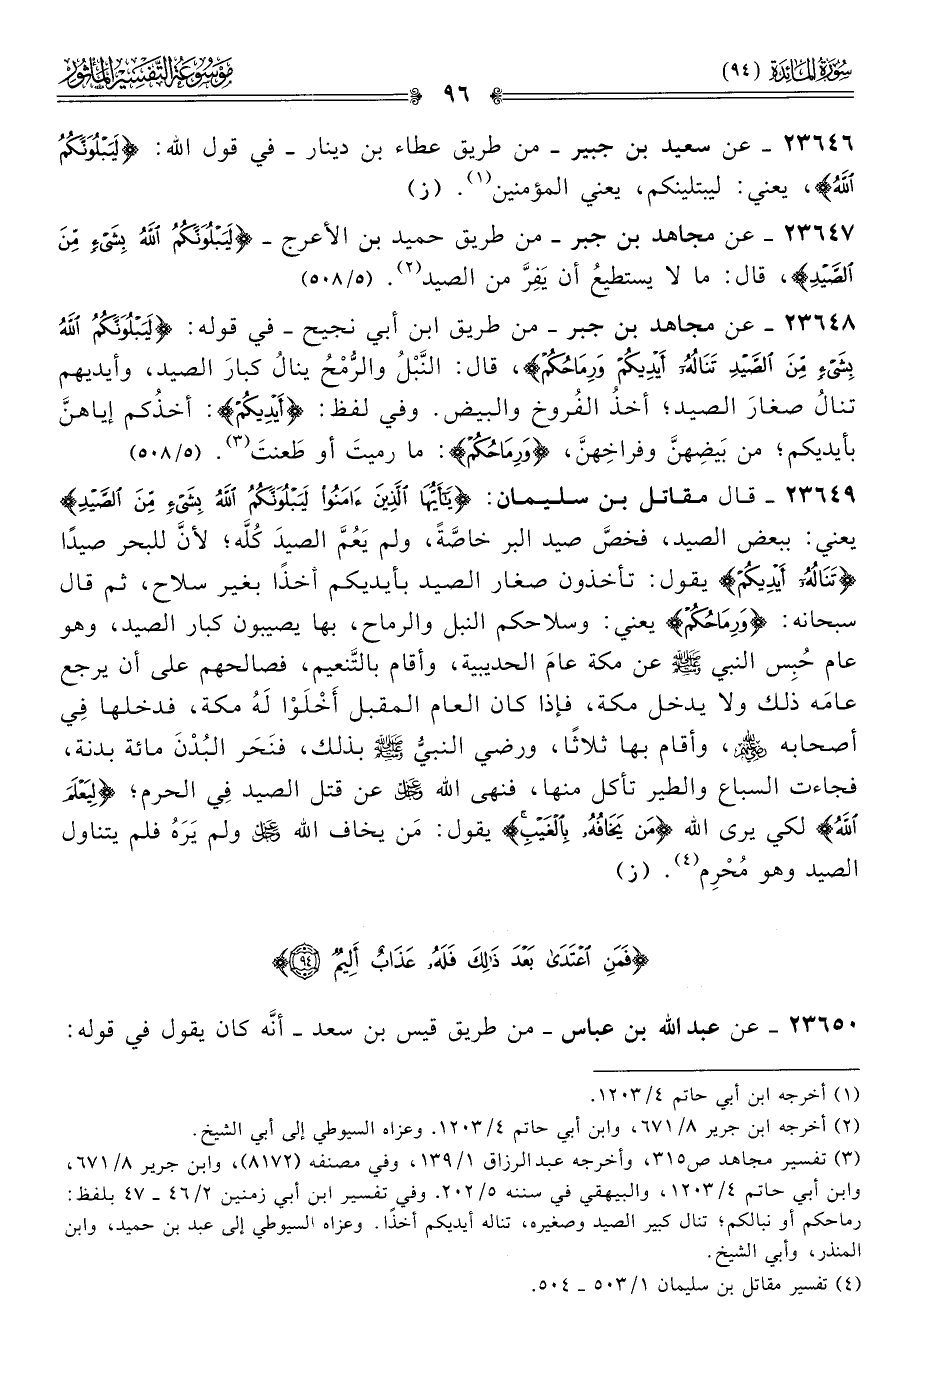 سُورَةُ المَائِدَة (٩٤)
٩٦
مَوْسُوعَةُ التَّفْسِيرِ المَأْثُور
٢٣٦٤٦ ـ عن سعيد بن جبير ـ من طريق عطاء بن دينار ـ في قول الله: ﴿لَيَبْلُوَنَّكُمُ
ٱللَّهُ﴾، يعني: ليبتلينكم، يعني المؤمنين(١). (ز)
٢٣٦٤٧ ـ عن مجاهد بن جبر ـ من طريق حميد بن الأعرج ـ ﴿لَيَبْلُوَنَّكُمُ ٱللَّهُ بِشَىْءٍ مِّنَ
ٱلصَّيْدِ﴾، قال: ما لا يستطيعُ أن يَفِرَّ من الصيد(٢). (٥/٥٠٨)
٢٣٦٤٨ ـ عن مجاهد بن جبر ـ من طريق ابن أبي نجيح ـ في قوله: ﴿لَيَبْلُوَنَّكُمُ ٱللَّهُ
بِشَىْءٍ مِّنَ ٱلصَّيْدِ تَنَالُهُۥٓ أَيْدِيكُمْ وَرِمَاحُكُمْ﴾، قال: النَّبْلُ والرُّمْحُ ينالُ كبارَ الصيد، وأيديهم
تنالُ صغارَ الصيد؛ أخذُ الفُروخ والبيض. وفي لفظ: ﴿أَيْدِيكُمْ﴾: أخذُكم إياهنَّ
بأيديكم؛ من بَيضِهنَّ وفراخِهنَّ، ﴿وَرِمَاحُكُمْ﴾: ما رميتَ أو طَعنتَ(٣). (٥/٥٠٨)
٢٣٦٤٩ ـ قال مقاتل بن سليمان: ﴿يَٰٓأَيُّهَا ٱلَّذِينَ ءَامَنُوا۟ لَيَبْلُوَنَّكُمُ ٱللَّهُ بِشَىْءٍ مِّنَ ٱلصَّيْدِ﴾
يعني: ببعض الصيد، فخصَّ صيد البر خاصَّةً، ولم يَعُمَّ الصيدَ كُلَّه؛ لأنَّ للبحر صيدًا
﴿تَنَالُهُۥٓ أَيْدِيكُمْ﴾ يقول: تأخذون صغار الصيد بأيديكم أخذًا بغير سلاح، ثم قال
سبحانه: ﴿وَرِمَاحُكُمْ﴾ يعني: وسلاحكم النبل والرماح، بها يصيبون كبار الصيد، وهو
عام حُبِس النبي ﷺ عن مكة عامَ الحديبية، وأقام بالتَّنعيم، فصالحهم على أن يرجع
عامَه ذلك ولا يدخل مكة، فإذا كان العام المقبل أَخْلَوْا لَهُ مكة، فدخلها فِي
أصحابه ﵃، وأقام بها ثلاثًا، ورضي النبيُّ ﷺ بذلك، فنَحَر البُدْنَ مائة بدنة،
فجاءت السباع والطير تأكل منها، فنهى الله ﷿ عن قتل الصيد فِي الحرم؛ ﴿لِيَعْلَمَ
ٱللَّهُ﴾ لكي يرى الله ﴿مَن يَخَافُهُۥ بِٱلْغَيْبِ ۚ﴾ يقول: مَن يخاف الله ﷿ ولم يَرَهُ فلم يتناول
الصيد وهو مُحْرِم(٤). (ز)
﴿فَمَنِ ٱعْتَدَىٰ بَعْدَ ذَٰلِكَ فَلَهُۥ عَذَابٌ أَلِيمٌ ٩٤﴾
٢٣٦٥٠ ـ عن عبد الله بن عباس ـ من طريق قيس بن سعد ـ أنَّه كان يقول في قوله:
(١) أخرجه ابن أبي حاتم ٤/١٢٠٣.
(٢) أخرجه ابن جرير ٨/٦٧١، وابن أبي حاتم ٤/١٢٠٣. وعزاه السيوطي إلى أبي الشيخ.
(٣) تفسير مجاهد ص٣١٥، وأخرجه عبد الرزاق ١/١٣٩، وفي مصنفه (٨١٧٢)، وابن جرير ٨/٦٧١،
وابن أبي حاتم ٤/١٢٠٣، والبيهقي في سننه ٥/٢٠٢. وفي تفسير ابن أبي زمنين ٢/٤٦ ـ ٤٧ بلفظ:
رماحكم أو نبالكم؛ تنال كبير الصيد وصغيره، تناله أيديكم أخذًا. وعزاه السيوطي إلى عبد بن حميد، وابن
المنذر، وأبي الشيخ.
(٤) تفسير مقاتل بن سليمان ١/٥٠٣ ـ ٥٠٤.